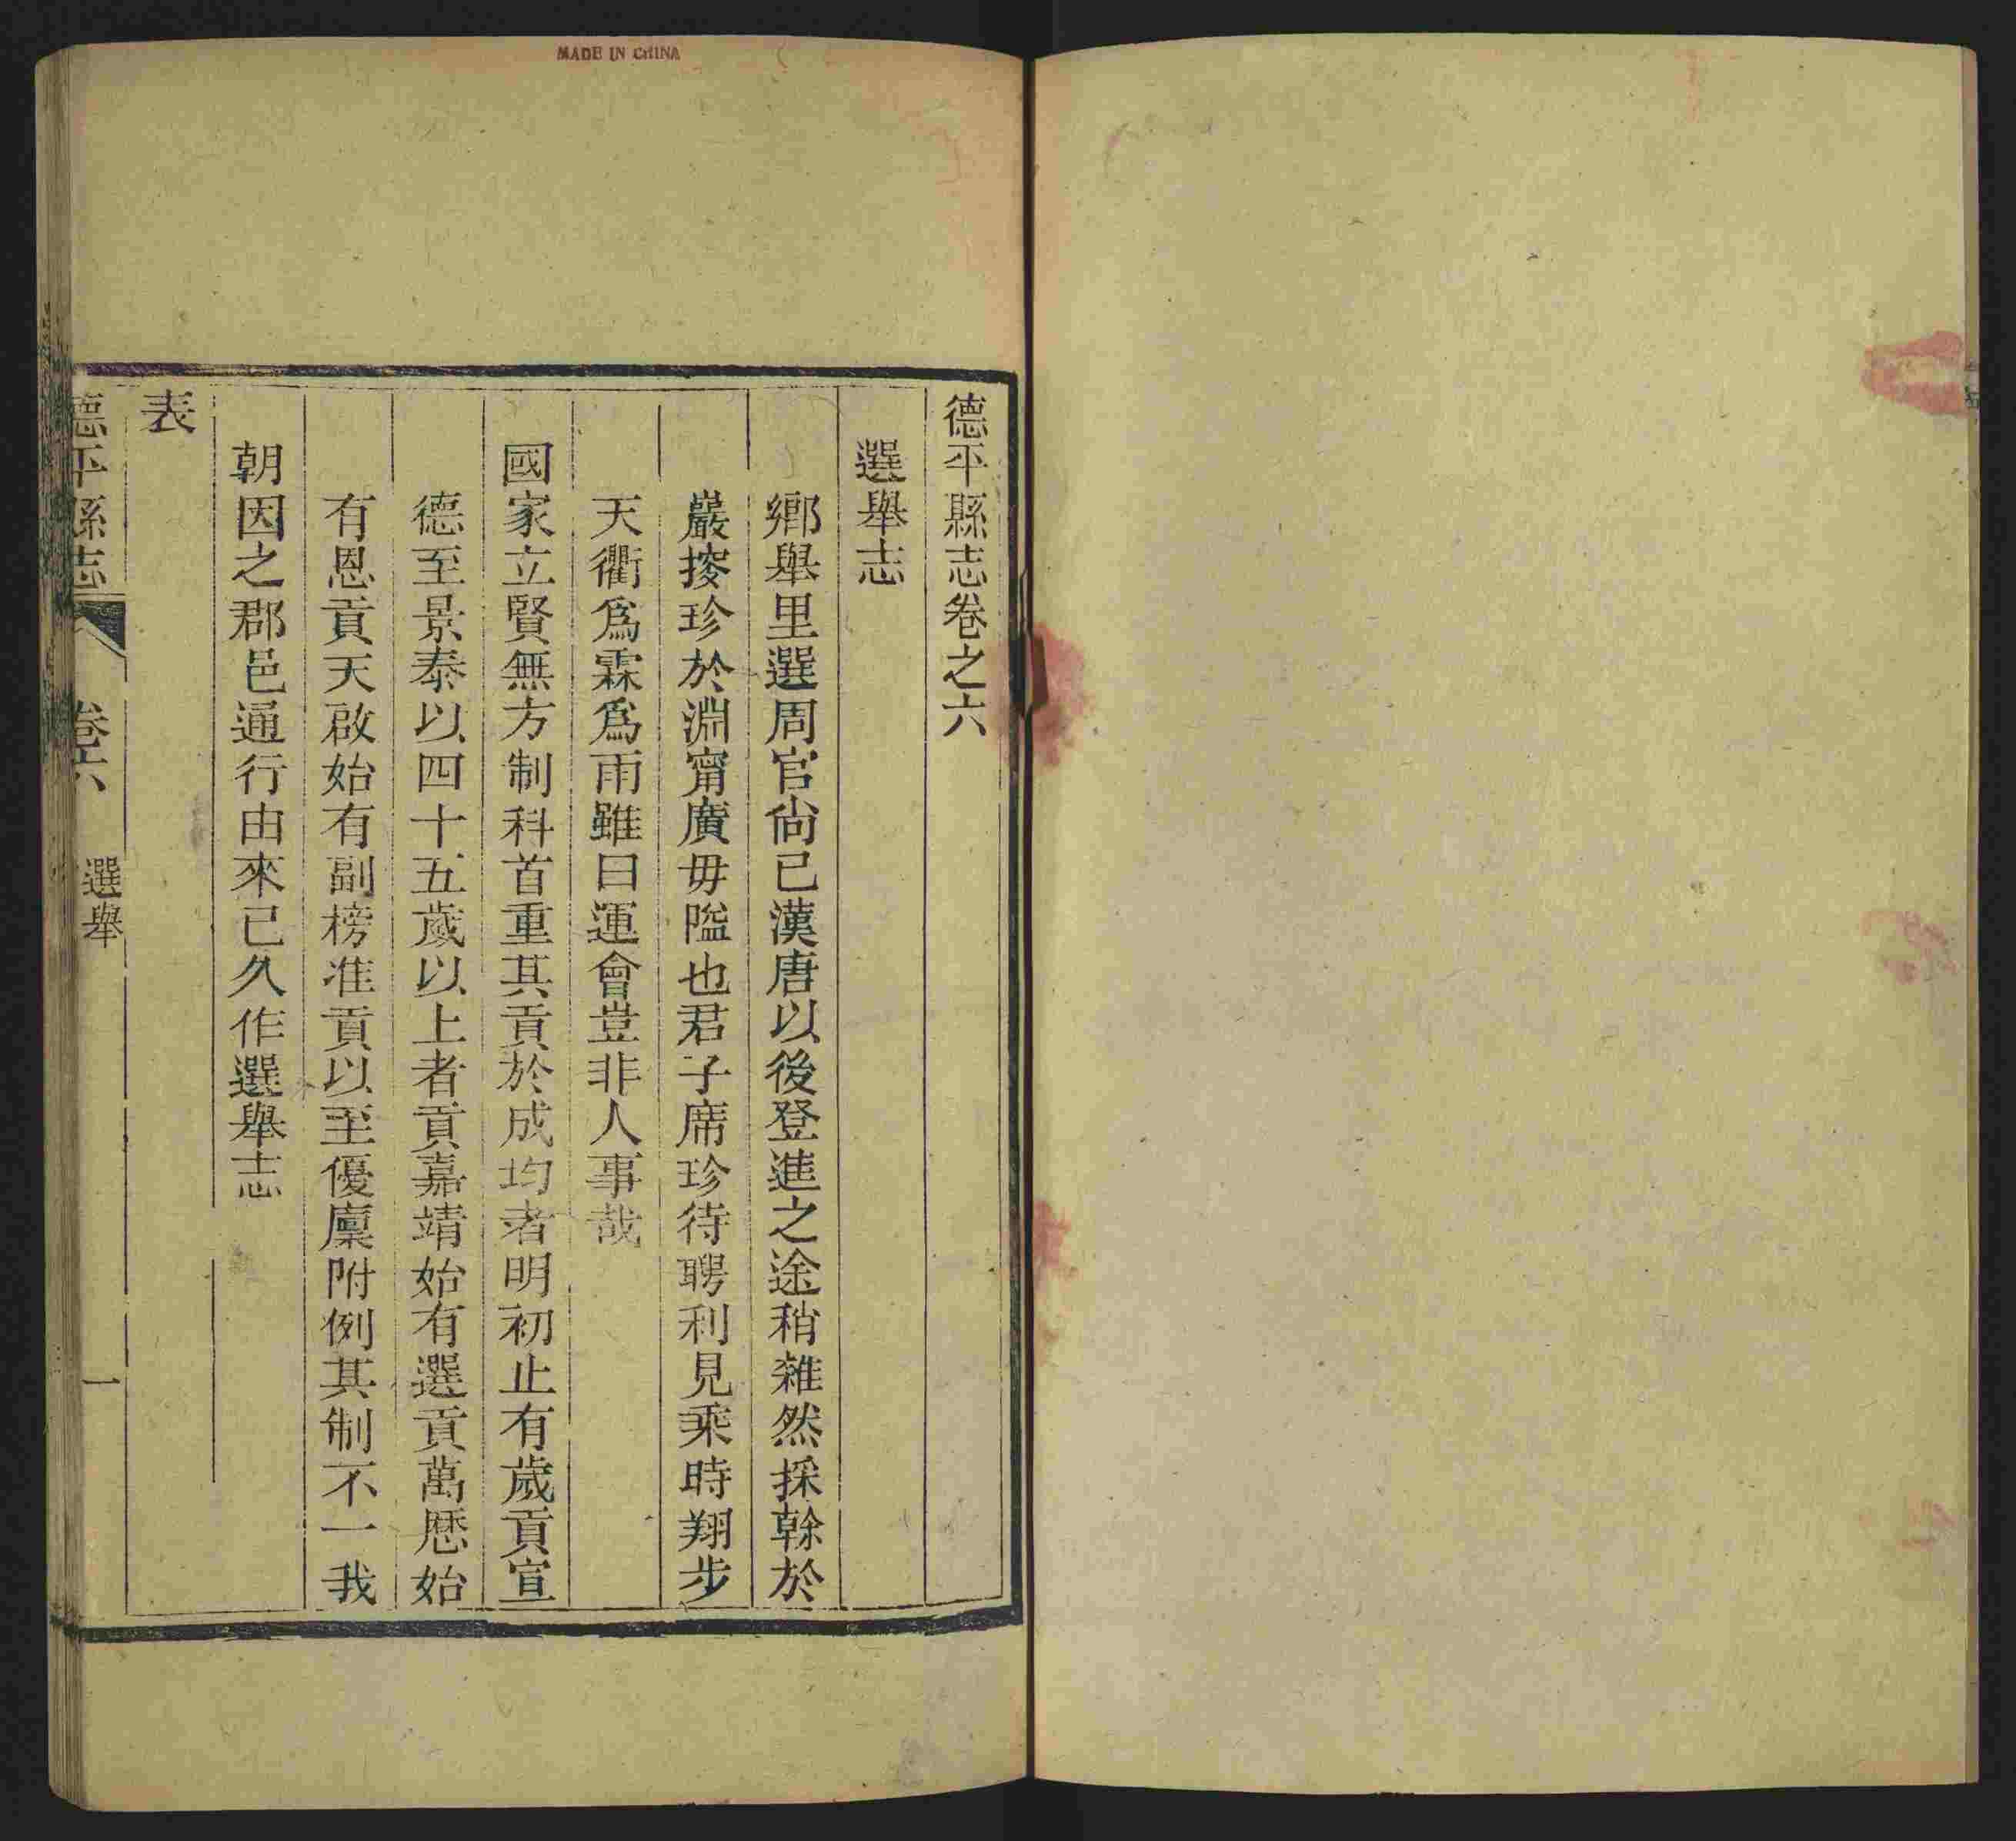 MADE IN CHINA
德平縣志卷之六
選舉志
鄉舉里選周官尙已漢唐以後登進之途稍雜然採榦於
巖搜珍於淵甯廣毋隘也君子席珍待聘利見乘時翔步
天衢爲霖爲雨雖曰運會豈非人事哉
國家立賢無方制科首重其貢於成均者明初止有歲貢宣
德至景泰以四十五歲以上者貢嘉靖始有選貢萬厯始
有恩貢天啟始有副榜准貢以至優廩附例其制不一我
朝因之郡邑通行由來已久作選舉志
表
德平縣志 卷六 選舉 一